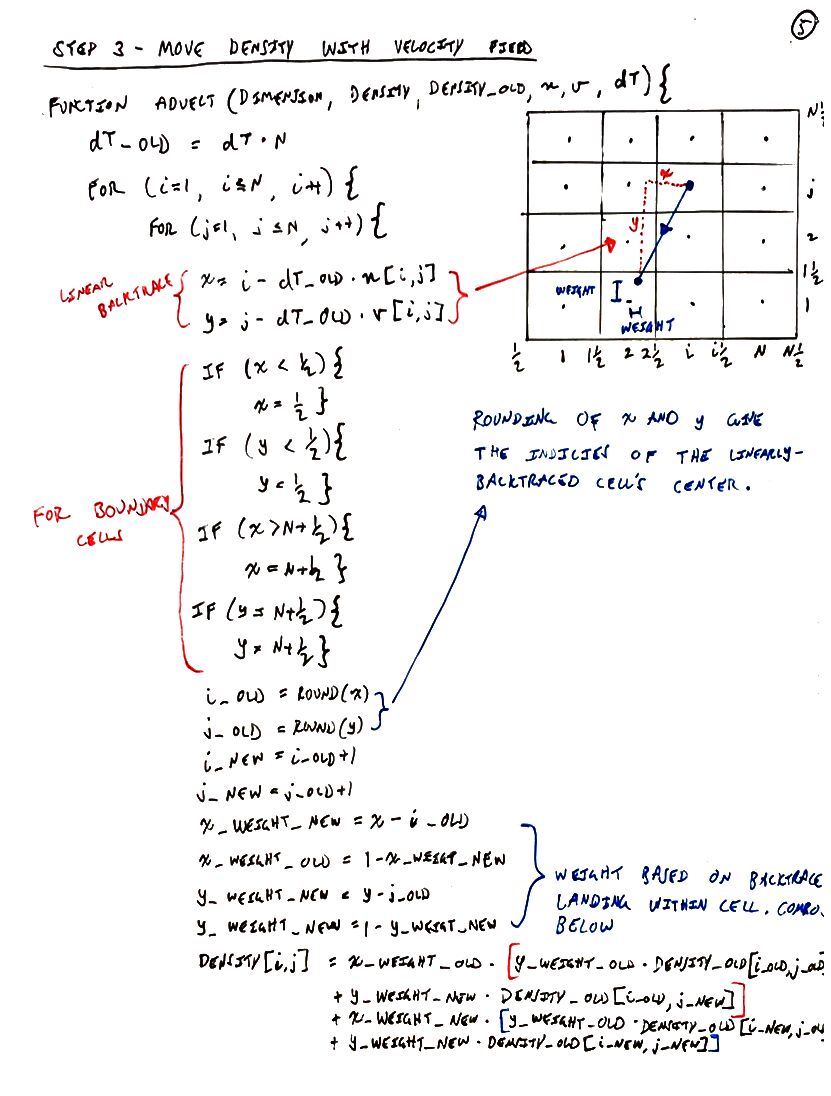 5
STEP 3 - MOVE DENSITY WITH VELOCITY FIELD
FUNCTION ADVECT (DIMENSION, DENSITY, DENSITY_OLD, u, v, dT) {
dT_OLD = dT · N
FOR (i=1, i≤N, i++) {
FOR (j=1, j≤N, j++) {
LINEAR BACKTRACE
x = i - dT_OLD · u[i,j]
y = j - dT_OLD · v[i,j]
N½
j
2
1½
1
x
y
WEIGHT
WEIGHT
½ 1 1½ 2 2½ i i½ N N½
FOR BOUNDARY CELLS
IF (x < ½) {
x = ½ }
IF (y < ½) {
y = ½ }
IF (x > N+½) {
x = N+½ }
IF (y = N+½) {
y = N+½ }
ROUNDING OF x AND y GIVE
THE INDICIES OF THE LINEARLY-
BACKTRACED CELL'S CENTER.
i_OLD = ROUND(x)
j_OLD = ROUND(y)
i_NEW = i_OLD+1
j_NEW = j_OLD+1
x_WEIGHT_NEW = x - i_OLD
x_WEIGHT_OLD = 1-x_WEIGT_NEW
y_WEIGHT_NEW = y-j_OLD
y_WEIGHT_NEW = 1-y_WEIGT_NEW
WEIGHT BASED ON BACKTRACE
LANDING WITHIN CELL.
BELOW
DENSITY[i,j] = x_WEIGHT_OLD · [y_WEIGHT_OLD · DENSITY_OLD[i_OLD, j_OLD]
+ y_WEIGHT_NEW · DENSITY_OLD[i_OLD, j_NEW]]
+ x_WEIGHT_NEW · [y_WEIGHT_OLD · DENSITY_OLD[i_NEW, j_OL
+ y_WEIGHT_NEW · DENSITY_OLD[i_NEW, j_NEW]]